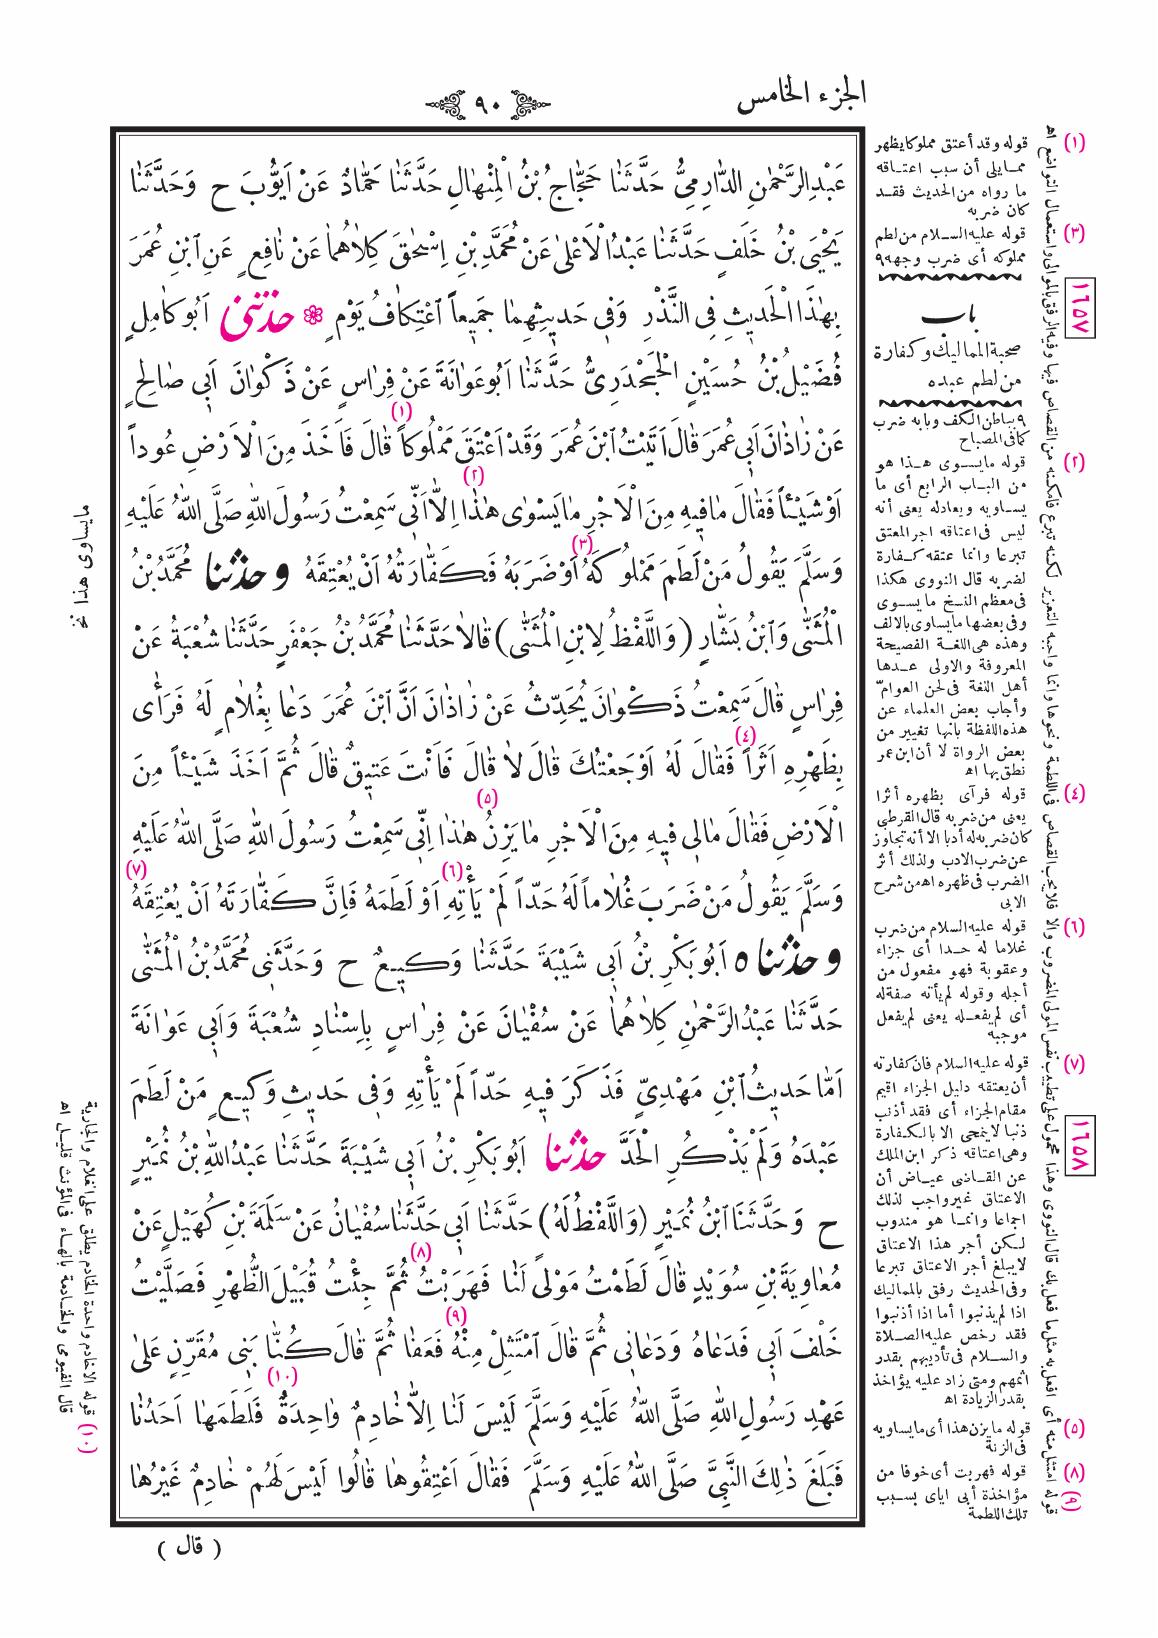 الجزء الخامس
٩٠
عَبْدِالرَّحْمٰنِ الدَّارِمِىُّ حَدَّثَنَا حَجَّاجُ بْنُ الْمِنْهَالِ حَدَّثَنَا حَمَّادٌ عَنْ اَيُّوبَ ح وَحَدَّثَنَا
يَحْيَى بْنُ خَلَفٍ حَدَّثَنَا عَبْدُ الْاَعْلىٰ عَنْ مُحَمَّدِ بْنِ اِسْحٰقَ كِلاٰهُمَا عَنْ نَافِعٍ عَنِ ابْنِ عُمَرَ
بِهٰذَا الْحَديثِ فِى النَّذْرِ وَفِى حَديثِهِمَا جَميعاً اعْتِكَافُ يَوْمٍ ۞ حدثنى اَبُو كَامِلٍ
فُضَيْلُ بْنُ حُسَيْنٍ الْجَحْدَرِىُّ حَدَّثَنَا اَبُو عَوَانَةَ عَنْ فِرَاسٍ عَنْ ذَكْوَانَ اَبِى صَالِحٍ
عَنْ زَاذَانَ اَبِى عُمَرَ قَالَ اَتَيْتُ ابْنَ عُمَرَ وَقَدْ اَعْتَقَ مَمْلُوكاً (١) قَالَ فَاَخَذَ مِنَ الْاَرْضِ عُوداً
اَوْ شَيْئاً فَقَالَ مَا فِيهِ مِنَ الْاَجْرِ مَا يَسْوٰى (٢) هٰذَا اِلاَّ اَنِّى سَمِعْتُ رَسُولَ اللهِ صَلَّى اللهُ عَلَيْهِ
وَسَلَّمَ يَقُولُ مَنْ لَطَمَ مَمْلُوكَهُ (٣) اَوْ ضَرَبَهُ فَكَفَّارَتُهُ اَنْ يُعْتِقَهُ وحدثنا مُحَمَّدُ بْنُ
الْمُثَنّٰى وَابْنُ بَشَّارٍ (وَاللَّفْظُ لِابْنِ الْمُثَنّٰى) قَالاَ حَدَّثَنَا مُحَمَّدُ بْنُ جَعْفَرٍ حَدَّثَنَا شُعْبَةُ عَنْ
فِرَاسٍ قَالَ سَمِعْتُ ذَكْوَانَ يُحَدِّثُ عَنْ زَاذَانَ اَنَّ ابْنَ عُمَرَ دَعَا بِغُلاَمٍ لَهُ فَرَأٰى
بِظَهْرِهِ اَثَراً (٤) فَقَالَ لَهُ اَوْجَعْتُكَ قَالَ لاَ قَالَ فَاَنْتَ عَتِيقٌ قَالَ ثُمَّ اَخَذَ شَيْئاً مِنَ
الْاَرْضِ فَقَالَ مَالِى فِيهِ مِنَ الْاَجْرِ مَا يَزِنُ (٥) هٰذَا اِنِّى سَمِعْتُ رَسُولَ اللهِ صَلَّى اللهُ عَلَيْهِ
وَسَلَّمَ يَقُولُ مَنْ ضَرَبَ غُلاَماً لَهُ حَدّاً لَمْ يَأْتِهِ (٦) اَوْ لَطَمَهُ فَاِنَّ كَفَّارَتَهُ اَنْ يُعْتِقَهُ (٧)
وحدثناه اَبُو بَكْرِ بْنُ اَبِى شَيْبَةَ حَدَّثَنَا وَكِيعٌ ح وَحَدَّثَنِى مُحَمَّدُ بْنُ الْمُثَنّٰى
حَدَّثَنَا عَبْدُ الرَّحْمٰنِ كِلاَهُمَا عَنْ سُفْيَانَ عَنْ فِرَاسٍ بِاِسْنَادِ شُعْبَةَ وَاَبِى عَوَانَةَ
اَمَّا حَديثُ ابْنِ مَهْدِىٍّ فَذَكَرَ فِيهِ حَدّاً لَمْ يَأْتِهِ وَفِى حَديثِ وَكِيعٍ مَنْ لَطَمَ
عَبْدَهُ وَلَمْ يَذْكُرِ الْحَدَّ حدثنا اَبُو بَكْرِ بْنُ اَبِى شَيْبَةَ حَدَّثَنَا عَبْدُ اللهِ بْنُ نُمَيْرٍ
ح وَحَدَّثَنَا ابْنُ نُمَيْرٍ (وَاللَّفْظُ لَهُ) حَدَّثَنَا اَبِى حَدَّثَنَا سُفْيَانُ عَنْ سَلَمَةَ بْنِ كُهَيْلٍ عَنْ
مُعَاوِيَةَ بْنِ سُوَيْدٍ قَالَ لَطَمْتُ مَوْلىً لَنَا فَهَرَبْتُ (٨) ثُمَّ جِئْتُ قُبَيْلَ الظُّهْرِ فَصَلَّيْتُ
خَلْفَ اَبِى فَدَعَاهُ وَدَعَانِى ثُمَّ قَالَ امْتَثِلْ مِنْهُ (٩) فَعَفَا ثُمَّ قَالَ كُنَّا بَنِى مُقَرِّنٍ عَلىٰ
عَهْدِ رَسُولِ اللهِ صَلَّى اللهُ عَلَيْهِ وَسَلَّمَ لَيْسَ لَنَا اِلاَّ خَادِمٌ وَاحِدَةٌ (١٠) فَلَطَمَهَا اَحَدُنَا
فَبَلَغَ ذٰلِكَ النَّبِىَّ صَلَّى اللهُ عَلَيْهِ وَسَلَّمَ فَقَالَ اَعْتِقُوهَا قَالُوا لَيْسَ لَهُمْ خَادِمٌ غَيْرُهَا
( قال )
(١) قوله وقد أعتق مملوكا يظهر
ممايلى أن سبب اعتاقه
ما رواه من الحديث فقد
كان ضربه
(٣) قوله عليه السلام من لطم
مملوكه أى ضرب وجهه٩
١٦٥٧
باب
صحبة المماليك وكفارة
من لطم عبده
٩ بباطن الكف وبابه ضرب
كافى المصباح
(٢) قوله مايسوى هذا هو
من الباب الرابع أى ما
يساويه ويعادله يعنى أنه
ليس فى اعتاقه اجر المعتق
تبرعا وانما عتقه كفارة
لضربه قال النووى هكذا
فى معظم النسخ ما يسوى
وفى بعضها مايساوى بالالف
وهذه هى اللغة الفصيحة
المعروفة والاولى عدها
أهل اللغة فى لحن العوام
وأجاب بعض العلماء عن
هذه اللفظة بأنها تغيير من
بعض الرواة لا أن ابن عمر
نطق بها اه
(٤) قوله فرآى بظهره أثرا
يعنى من ضربه قال القرطبى
كان ضربه له أدبا الا أنه تجاوز
عن ضرب الادب ولذلك أثر
الضرب فى ظهره اه من شرح
الابى
(٦) قوله عليه السلام من ضرب
غلاما له حدا أى جزاء
وعقوبة فهو مفعول من
أجله وقوله لم يأته صفة له
أى لم يفعله يعنى لم يفعل
موجبه
(٧) قوله عليه السلام فان كفارته
أن يعتقه دليل الجزاء اقيم
مقام الجزاء أى فقد أذنب
ذنبا لا ينمحى الا بالكفارة
وهى اعتاقه ذكر ابن الملك
عن القاضى عياض أن
الاعتاق غير واجب لذلك
اجماعا وانما هو مندوب
لكن أجر هذا الاعتاق
لايبلغ أجر الاعتاق تبرعا
وفى الحديث رفق بالمماليك
اذا لم يذنبوا أما اذا أذنبوا
فقد رخص عليه الصلاة
والسلام فى تأديبهم بقدر
اثمهم ومتى زاد عليه يؤاخذ
بقدر الزيادة اه
١٦٥٨
(٥) قوله مايزن هذا أى مايساويه
فى الزنة
(٨) قوله فهربت أى خوفا من
مؤاخذة أبى اياى بسبب
تلك اللطمة
(٩) قوله امتثل منه أى افعل به مثل ما فعل بك قال النووى وهذا محمول على تطييب نفس المولى المضروب والا فلا يجب القصاص فى اللطمة ونحوها وانما واجبه التعزير لكنه تبرع فأمكنه من القصاص فيها وفيه الرفق بالموالى واستعمال التواضع اه
مايساوى هذا نخ
(١٠) قوله الاخادم واحدة الخادم يطلق على الغلام والجارية
قال الفيومى والخادمة بالهاء فى المؤنث قليل اه